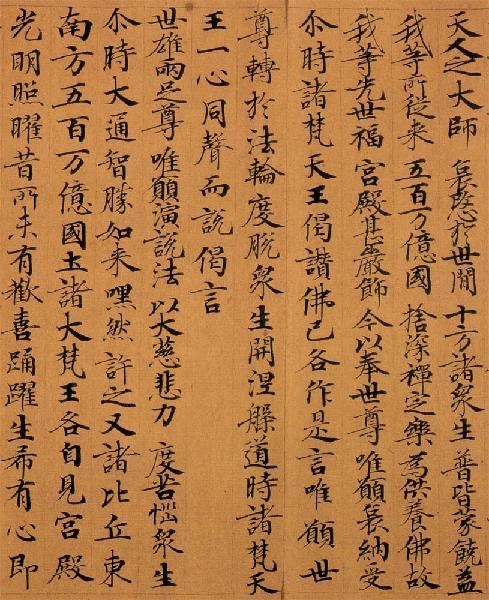 天人之大師 哀愍於世間 十方諸衆生 普皆蒙饒益
我等所從来 五百万億國 捨深禪定樂 為供養佛故
我等先世福 宮殿甚嚴飾 今以奉世尊 唯願哀納受
尒時諸梵天王偈讃佛已各作是言唯願世
尊轉於法輪度脱衆生開涅槃道時諸梵天
王一心同聲而說偈言
世雄兩足尊 唯願演說法 以大慈悲力 度苦惱衆生
尒時大通智勝如来嘿然許之又諸比丘東
南方五百万億國土諸大梵王各自見宮殿
光明照曜昔所未有歡喜踊躍生希有心即